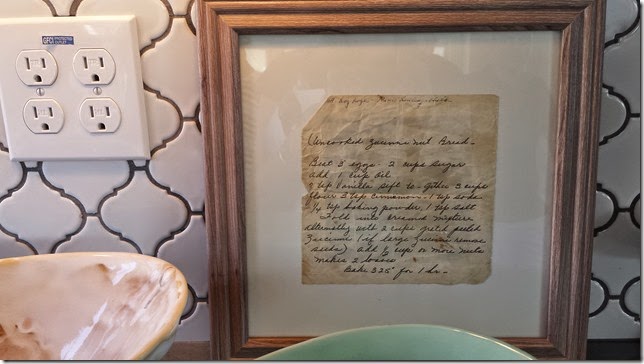 GFCI PROTECTED
OUTLET
Uncooked Zucinni Nut Bread -
Beat 3 eggs - 2 cups sugar
add 1 cup oil
2 tsp Vanilla sift to-gether 3 cups
flour 3 tsp cinnamon - 1 tsp soda
1/4 tsp baking powder, 1 tsp salt
Fold into creamed mixture
alternately with 2 cups grated peeled
Zuccinni (if large Zucinni remove
seeds) add 1/2 cup or more nuts
makes 2 loaves
Bake 325° for 1 hr -